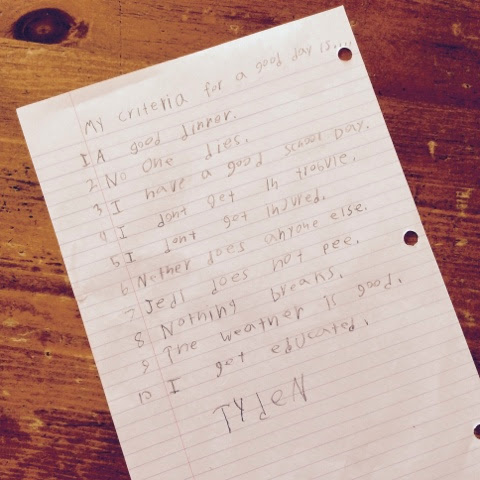 My criteria for a good day is....
1 A good dinner.
2 No one dies.
3 I have a good school Day.
4 I dont get in trobule.
5 I dont get injured.
6 Nether does anyone else.
7 Jedi does not pee.
8 Nothing breaks.
9 The weather is good.
10 I get educated.
TYdeN